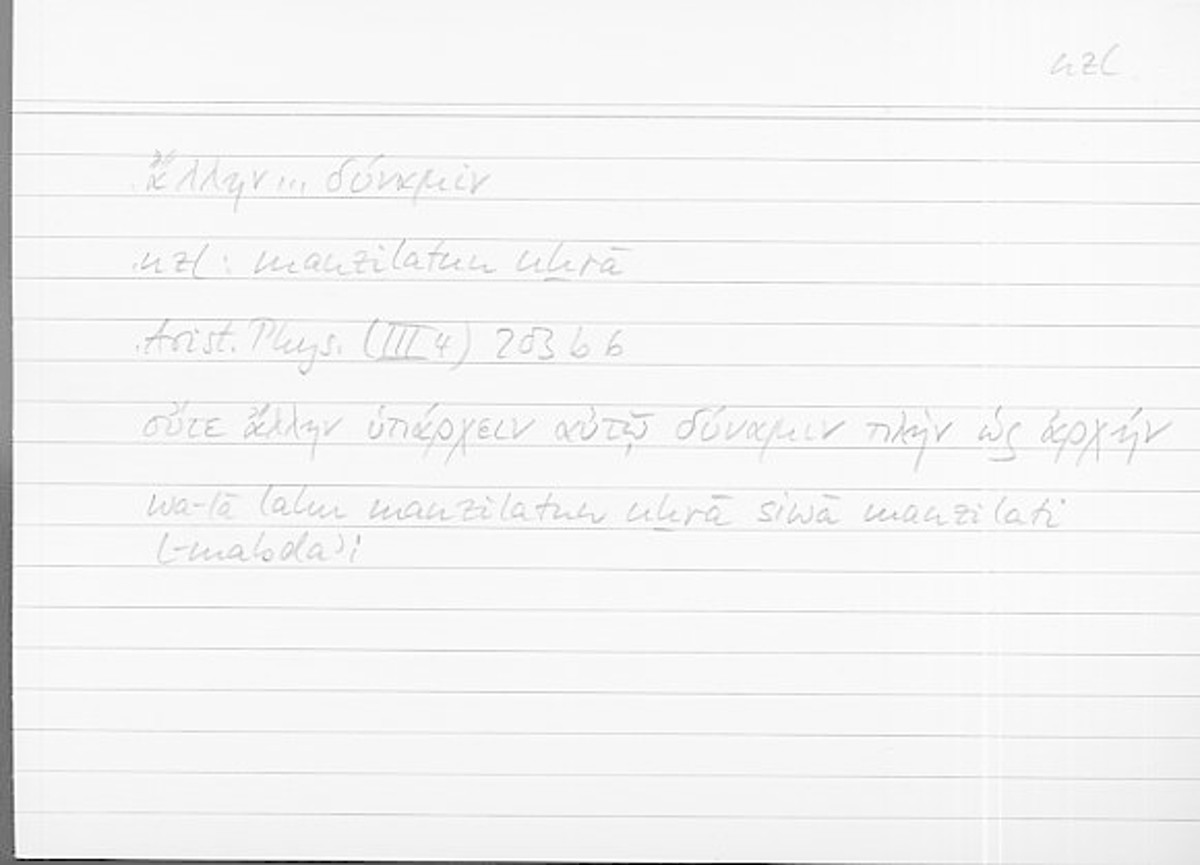 nzl
ἄλλην... δύναμιν
nzl: manzilatun uḫrā
Arist. Phys. (III 4) 203 b 6
οὔτε ἄλλην ὑπάρχειν αὐτῷ δύναμιν πλὴν ὡς ἀρχήν
wa-lā lahu manzilatun uḫrā siwā manzilati
l-mabdaʾi